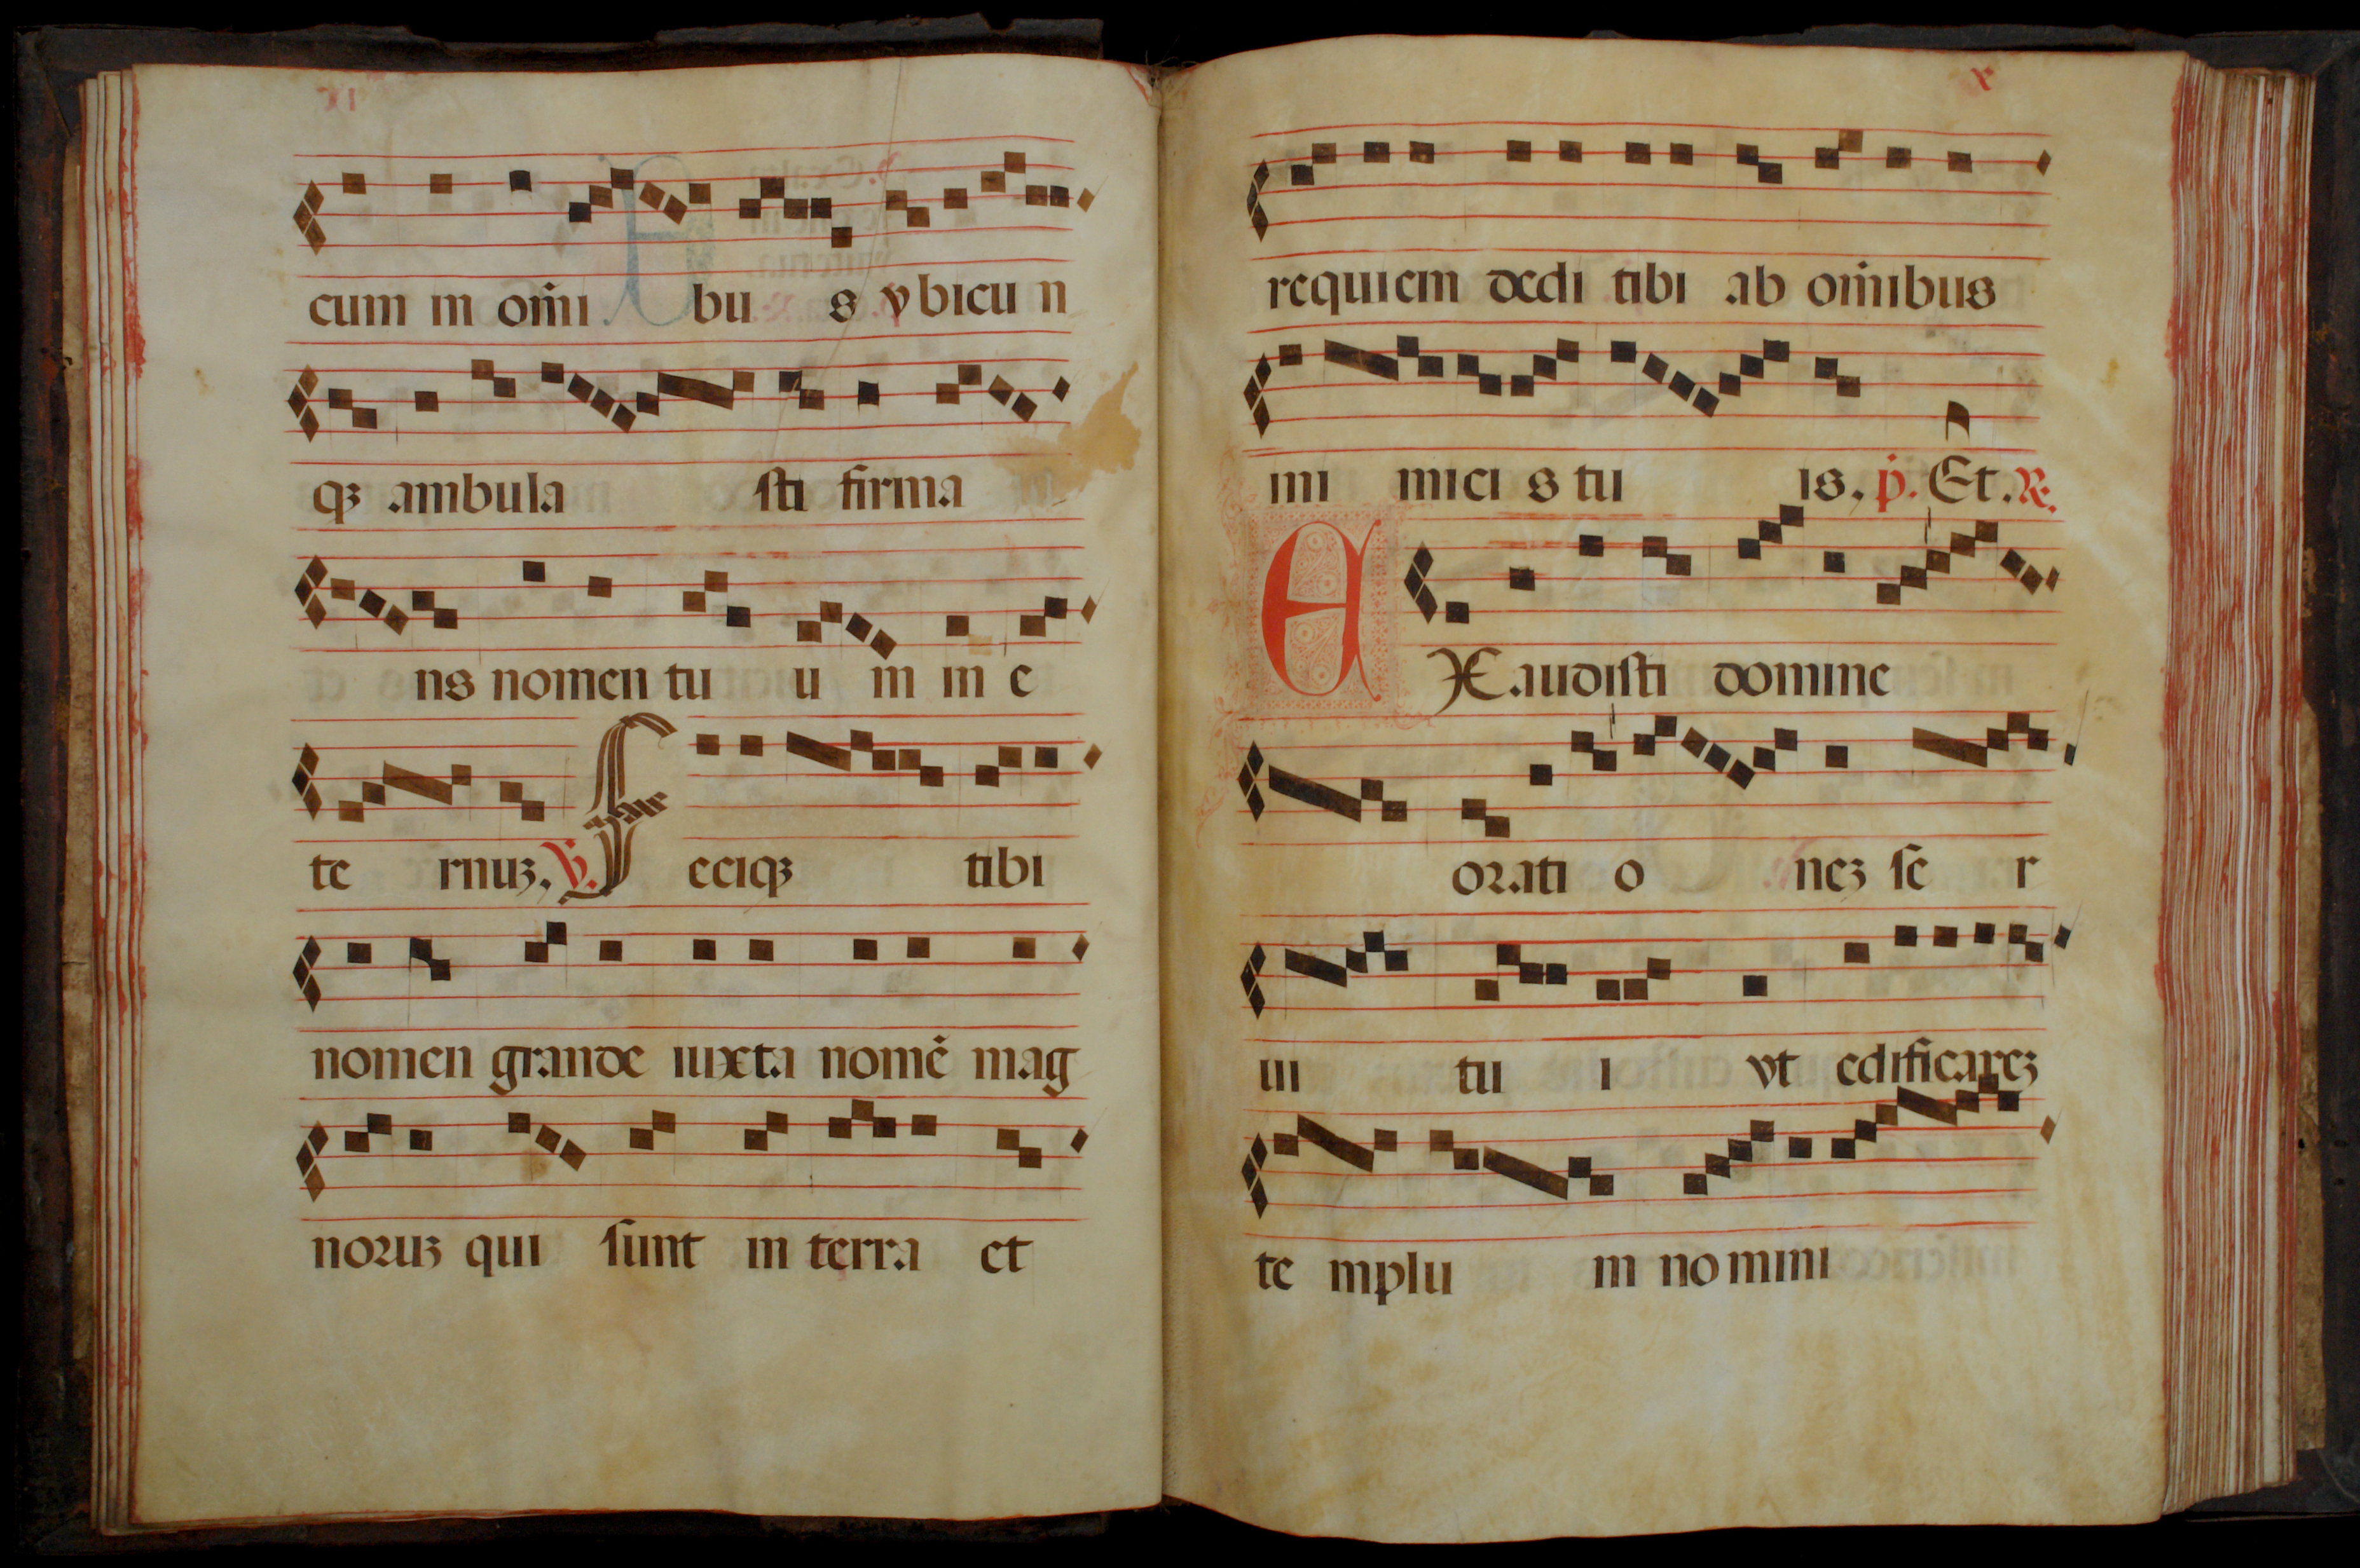 cum in om̄i bu s vbicu n
qꝫ ambula sti firma
ns nomen tu u m in e
te rnuꝫ. ℣. F eciqꝫ tibi
nomen grande iuxta nomē mag
noruꝫ qui sunt in terra et
x
requiem dedi tibi ab om̄ibus
ini mici s tu is. p̄. Et. ℟.
E X audisti domine
orati o neꝫ se r
ui tu i vt edificareꝫ
te mplu m no mini